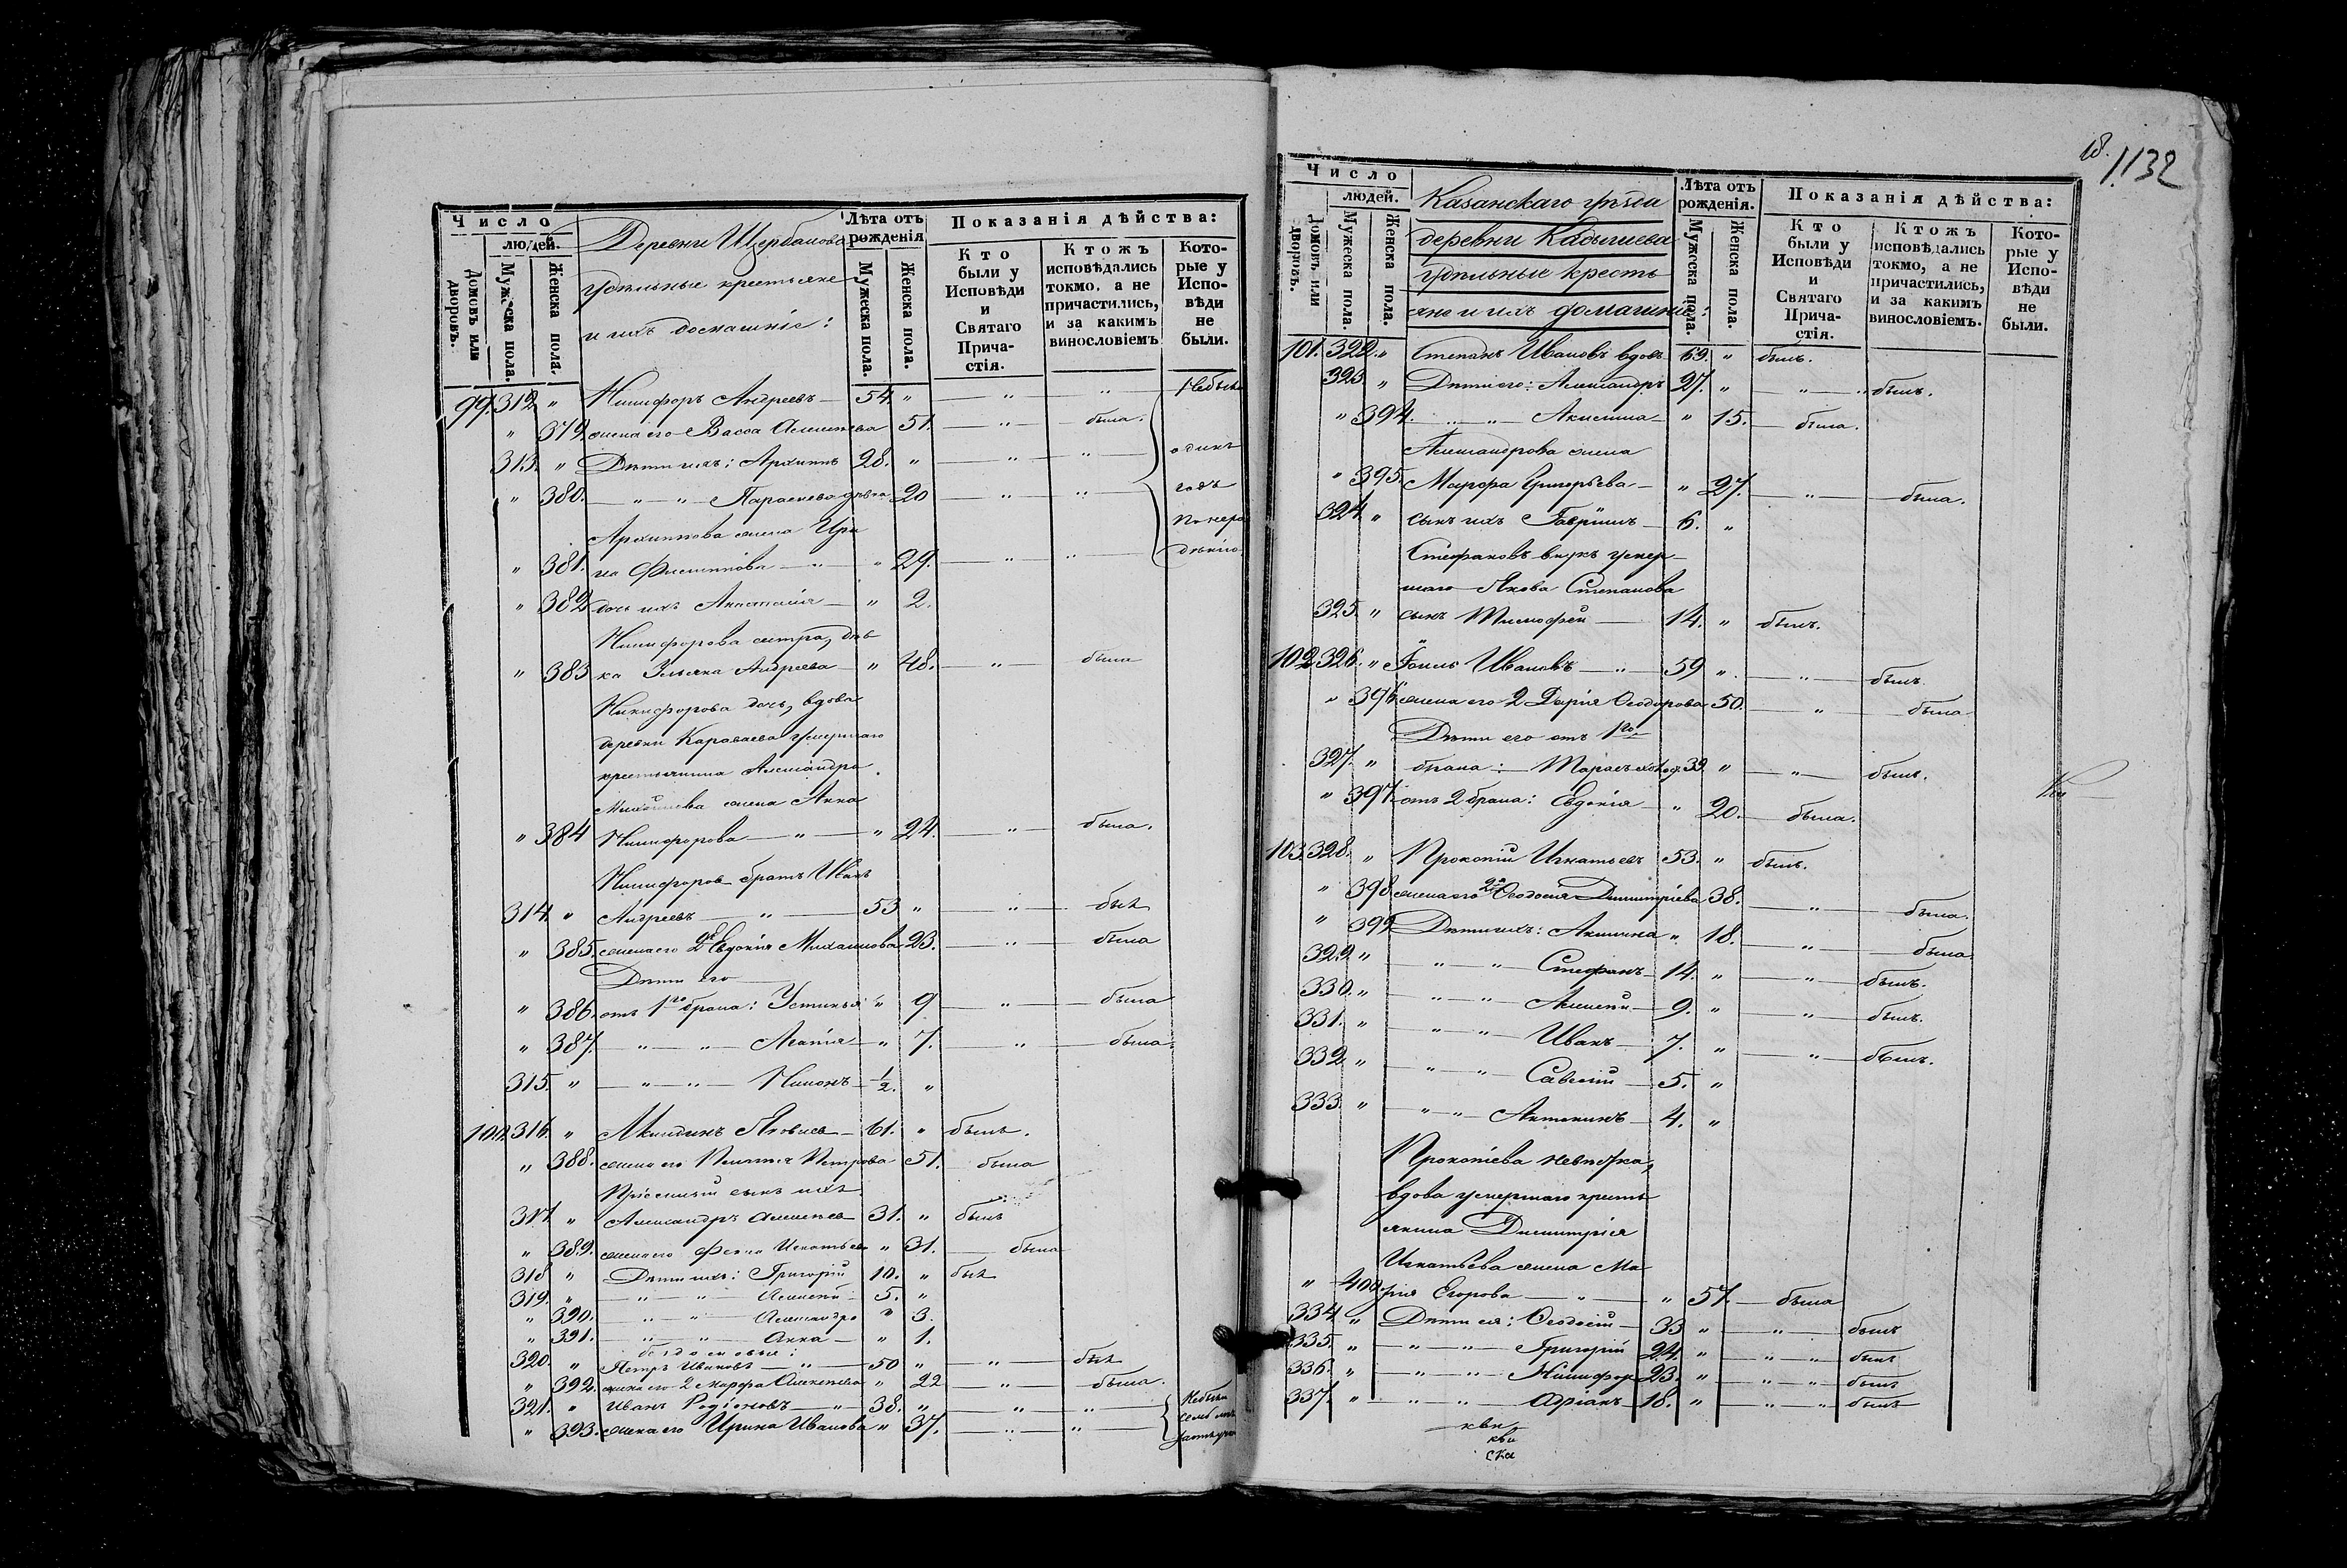 Число
людей.
Домовъ или дворовъ.
Мужеска пола.
Женска пола.
Деревни Щербакова
удѣльные крестьяне
и ихъ домашніе:
Лѣта отъ рожденія
Мужеска пола.
Женска пола.
Показанія дѣйства:
Кто были у Исповѣди и Святаго Прича-стія.
Ктожъ исповѣдались токмо, а не причастились, и за какимъ винословіемъ
Кото-рые у Испо-вѣди не были.
99. 312 " Никифоръ Андреевъ — 54. " — " — "
" 379 жена его Васса Алексѣева 51. — " — была.
313. " Дѣти ихъ: Архиппъ 28. " — " — " одинъ
" 380. — " — " — Параскева дѣвка 20 — " — " годъ
Архиппова жена Ири
" 381. на Филиппова — " — " 29. — " — "
" 382 дочь ихъ Анастасія — " 2.
Никифорова сестра, дѣв
" 383 ка Ульяна Андреева — " 48. — " — была
Никифорова дочь, вдова
деревни Караваева умершаго
крестьянина Александра
Михайлова жена Анна
" 384 Никифорова — " — " 24. — " — была.
Никифоровъ братъ Иванъ
314. " Андреевъ — " — 53 " — " — былъ
" 385. жена его 2я Евдокія Михаилова 23. — " — была
Дѣти его
" 386. отъ 1го брака: Устинья " 9 — " — была
" 387. — " — " — Агапія — " 7. — " — была.
315. " — " — " — Никонъ — 1/2. "
100. 316. " Акиндинъ Яковлев — 61. " былъ.
" 388. жена его Пелагея Петрова 51. была
Пріемный сынъ ихъ
317. " Александръ Алексѣев 31. " былъ
" 389. жена его Фекла Игнатьева " 31. — была
318 " Дѣти ихъ: Григорій 10. " былъ
319. " — " — " — Алексѣй 5. "
" 390. " — " — Александра " 3.
" 391. " — " — Анна — " 1.
бездомовые:
320. " Петръ Ивановъ — " — 50 " — " — былъ
" 392. жена его 2 Марфа Алексѣева " 22 — " — была.
321. " Иванъ Родіоновъ — " — 38. " — " — "
" 393. жена его Ирина Иванова " 37. — " — "
18. 1132
Число
людей.
Домовъ или дворовъ.
Мужеска пола.
Женска пола.
Казанскаго уѣзда
деревни Кадышева
удѣльные кресть
яне и ихъ домашніе:
Лѣта отъ рожденія.
Мужеска пола.
Женска пола.
Показанія дѣйства:
Кто были у Исповѣди и Святаго Прича-стія.
Ктожъ исповѣдались токмо, а не причастились, и за какимъ винословіемъ.
Кото-рые у Испо-вѣди не были.
101. 322. " Степанъ Ивановъ вдовъ 69. " былъ.
323. " Дѣти его: Александръ 27. " — " — былъ.
" 394. " — " — Акилина — " 15. — была.
Александрова жена
" 395. Марфа Григорьева — " 27. — " — была.
324. " сынъ ихъ Гавріилъ — 6. "
Стефановъ внукъ умер
шаго Якова Степанова
325. " сынъ Тимофей — 14. " былъ.
102. 326. " Іоиль Ивановъ — " 59 " — " — былъ.
" 396 жена его 2 Дарія Ѳеодорова 50. — " — была
Дѣти его отъ 1го
327. " брака: Тарасъ холос. 39 " — " — былъ.
" 397. отъ 2 брака: Евдокія — " 20. — была.
103. 328. " Прокопій Игнатьевъ 53. " былъ.
" 398 жена его 2я Ѳеодосія Димитріева 38. — " — была.
" 399 Дѣти ихъ: Акилина " 18. — " — была
329. " " — " — Стефанъ — 14. " — " — былъ.
330. " " — " — Алексѣй — 9. " — " — былъ.
331. " " — " — Иванъ — 7. " — " — былъ.
332. " " — " — Савелій — 5. "
333. " " — " — Антонинъ — 4. "
Прокопіева невѣстка,
вдова умершаго кресть
янина Димитрія
Игнатьева жена Ма
" 400. рія Егорова — " — " 57. — была
334. " Дѣти ея: Ѳеодосій — 33 " — " — былъ
335. " — " — " — Григорій 24. " — " — " былъ
336. " — " — " — Никифор 23. " — " — " былъ
337. " — " — " — Адріанъ — 18. " — " — " былъ